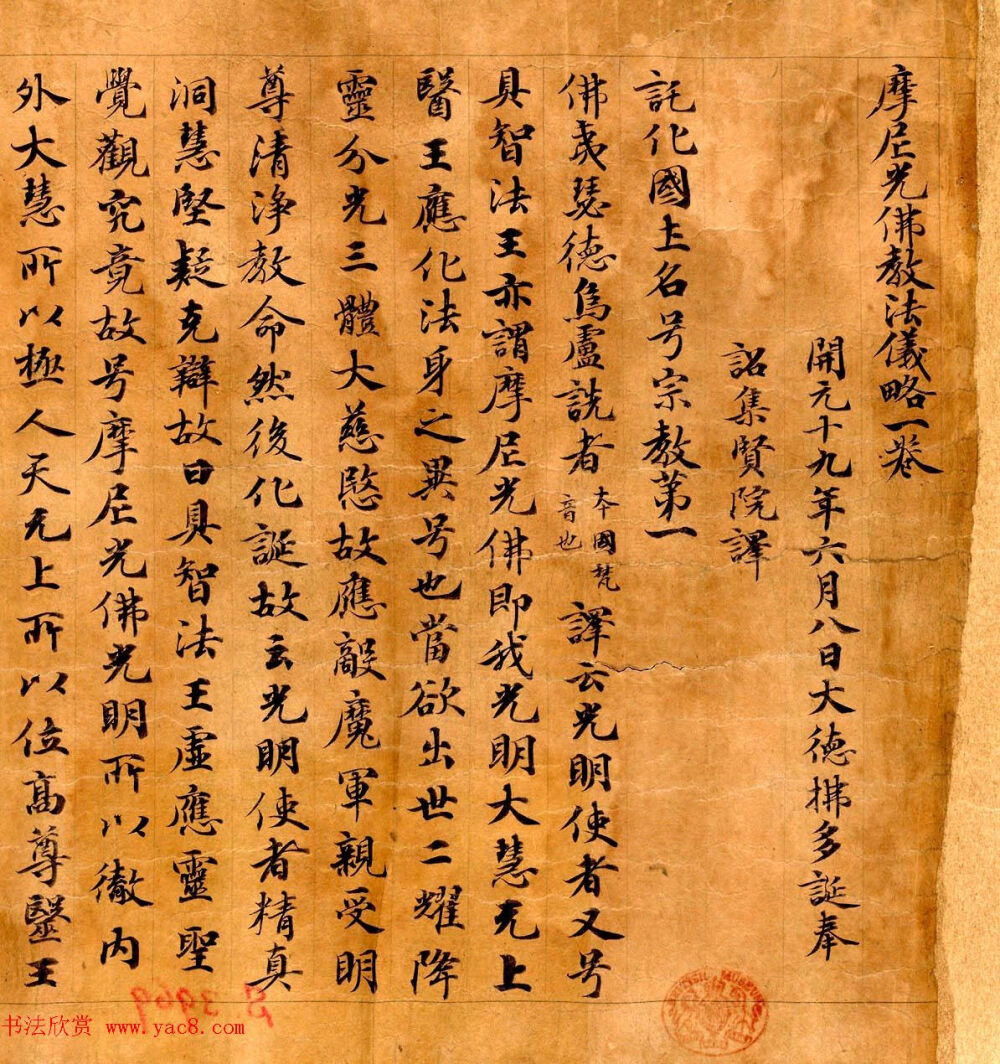 摩尼光佛教法儀略一卷
開元十九年六月八日大德拂多誕奉
詔集賢院譯
託化國主名号宗教第一
佛夷瑟德烏盧詵者 本國梵音也 譯云光明使者又号
具智法王亦謂摩尼光佛即我光明大慧无上
醫王應化法身之異号也當欲出世二耀降
靈分光三體大慈愍故應敵魔軍親受明
尊清淨教命然後化誕故云光明使者精真
洞慧堅疑克辯故曰具智法王虛應靈聖
覺觀究竟故号摩尼光佛光明所以徹内
外大慧所以極人天无上所以位高尊毉王
3969
书法欣赏 www.yac8.com